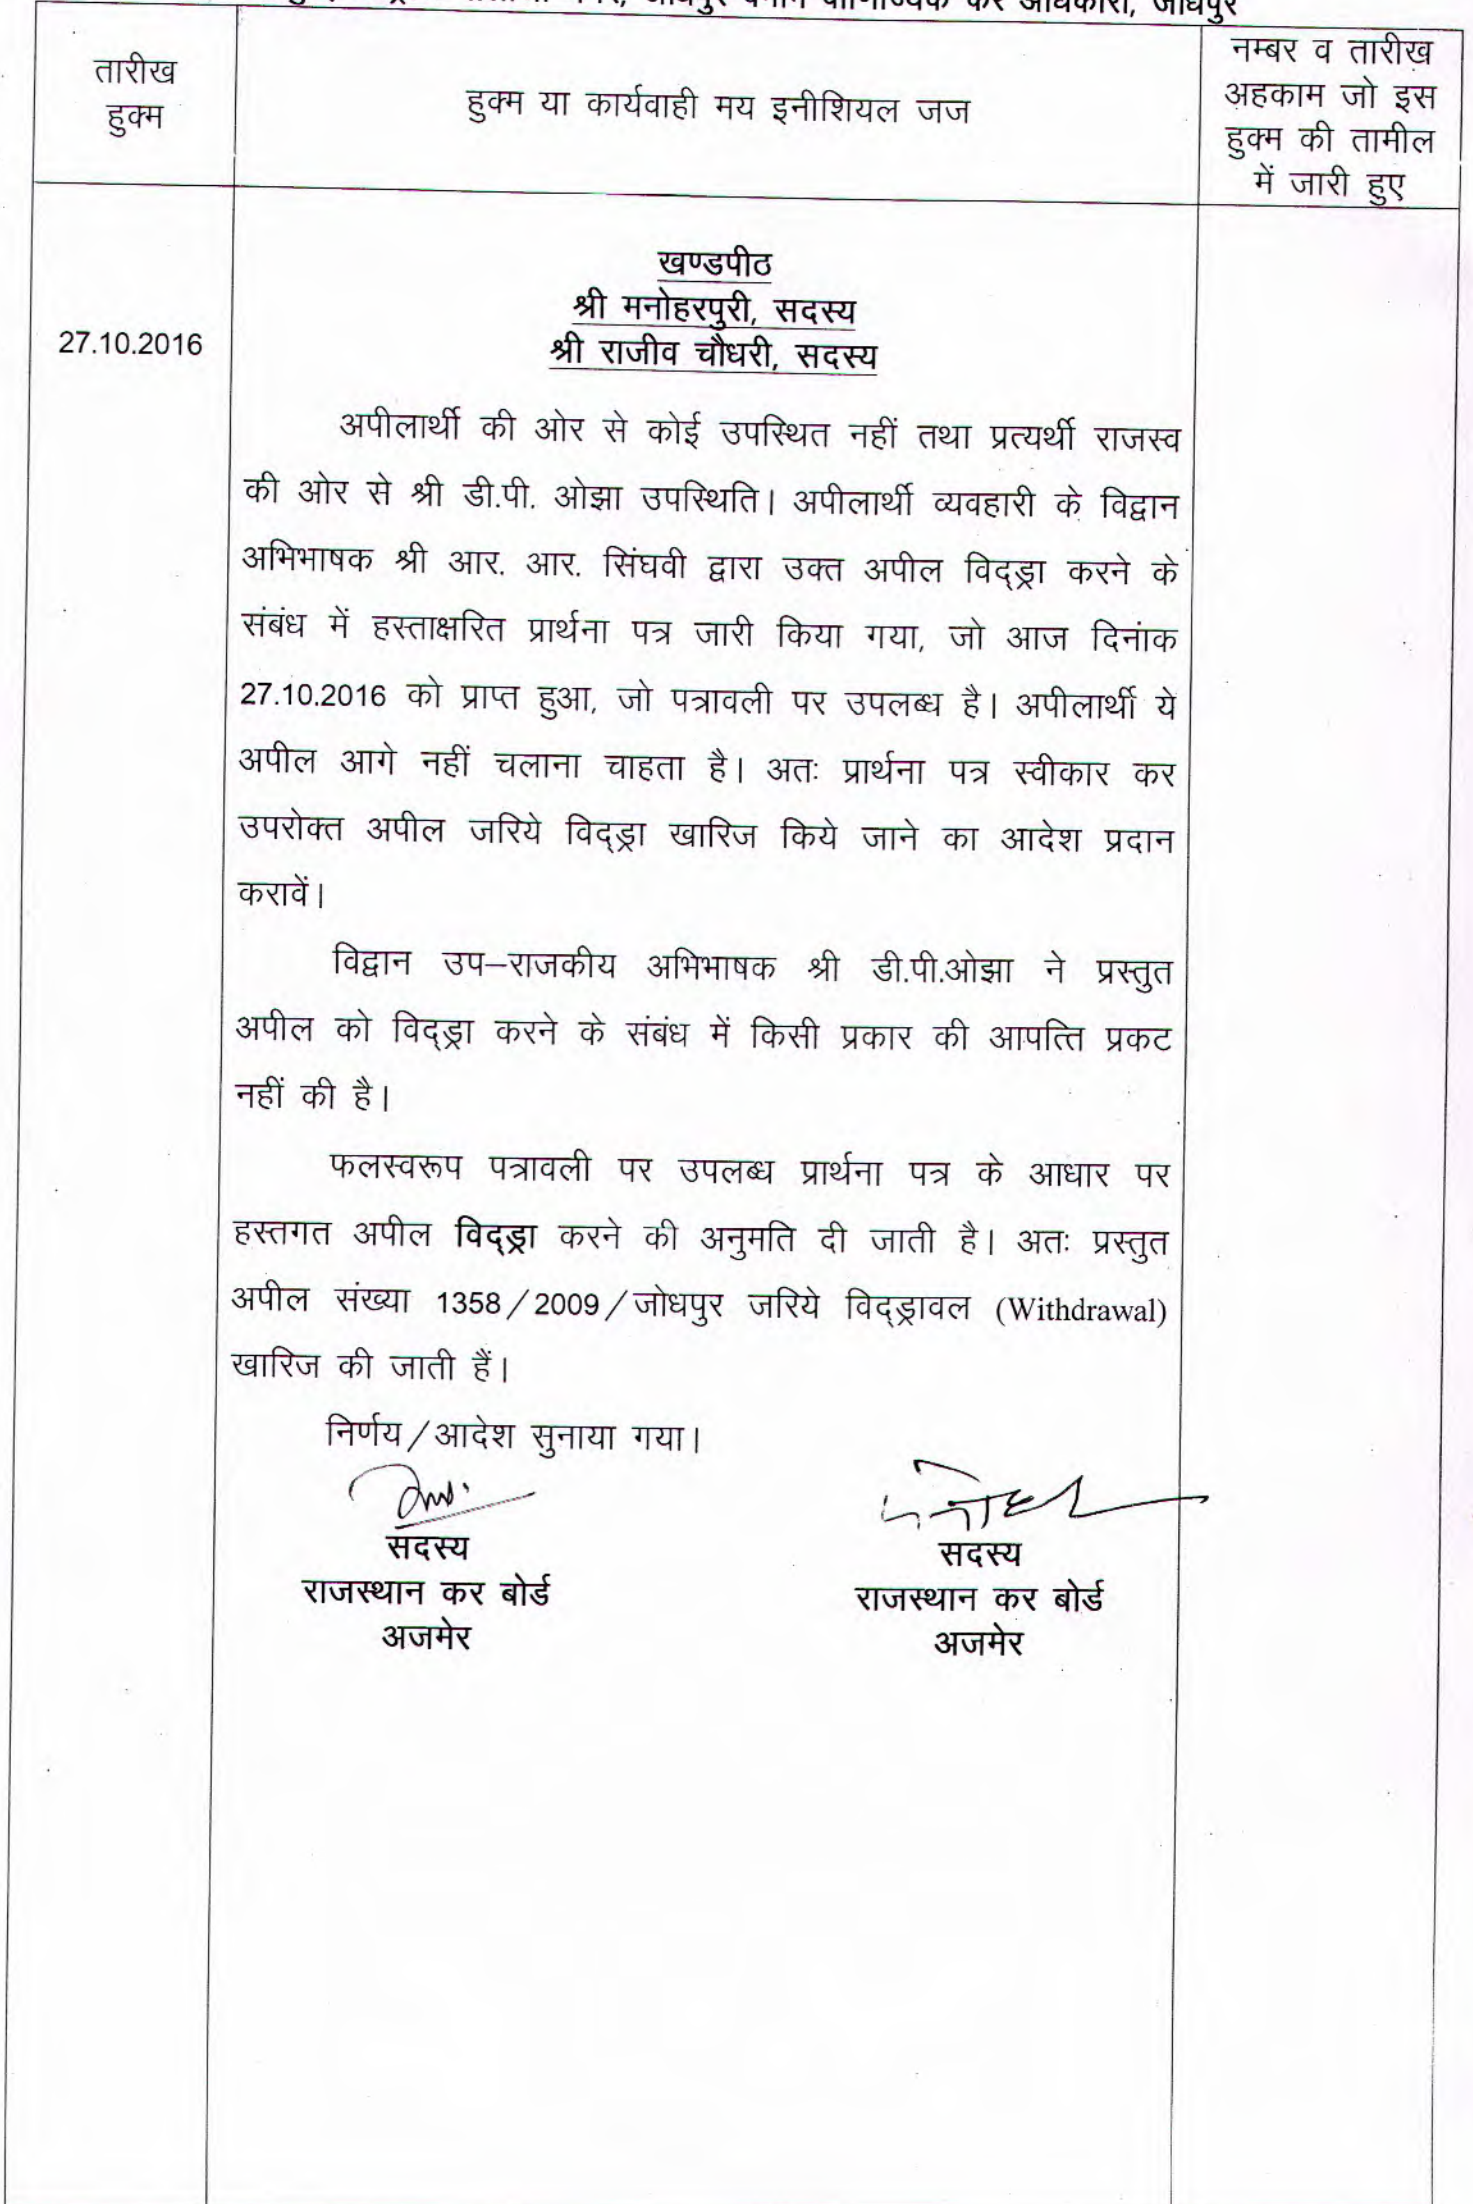 जोधपुर बनाम वाणिज्यिक कर अधिकारी, जोधपुर
तारीख
हुक्म
हुक्म या कार्यवाही मय इनीशियल जज
नम्बर व तारीख
अहकाम जो इस
हुक्म की तामील
में जारी हुए
27.10.2016
खण्डपीठ
श्री मनोहरपुरी, सदस्य
श्री राजीव चौधरी, सदस्य
अपीलार्थी की ओर से कोई उपस्थित नहीं तथा प्रत्यर्थी राजस्व
की ओर से श्री डी.पी. ओझा उपस्थिति। अपीलार्थी व्यवहारी के विद्वान
अभिभाषक श्री आर. आर. सिंघवी द्वारा उक्त अपील विद्ड्रा करने के
संबंध में हस्ताक्षरित प्रार्थना पत्र जारी किया गया, जो आज दिनांक
27.10.2016 को प्राप्त हुआ, जो पत्रावली पर उपलब्ध है। अपीलार्थी ये
अपील आगे नहीं चलाना चाहता है। अतः प्रार्थना पत्र स्वीकार कर
उपरोक्त अपील जरिये विद्ड्रा खारिज किये जाने का आदेश प्रदान
करावें।
विद्वान उप–राजकीय अभिभाषक श्री डी.पी.ओझा ने प्रस्तुत
अपील को विद्ड्रा करने के संबंध में किसी प्रकार की आपत्ति प्रकट
नहीं की है।
फलस्वरूप पत्रावली पर उपलब्ध प्रार्थना पत्र के आधार पर
हस्तगत अपील विद्ड्रा करने की अनुमति दी जाती है। अतः प्रस्तुत
अपील संख्या 1358/2009/जोधपुर जरिये विद्ड्रावल (Withdrawal)
खारिज की जाती हैं।
निर्णय/आदेश सुनाया गया।
सदस्य
राजस्थान कर बोर्ड
अजमेर
सदस्य
राजस्थान कर बोर्ड
अजमेर